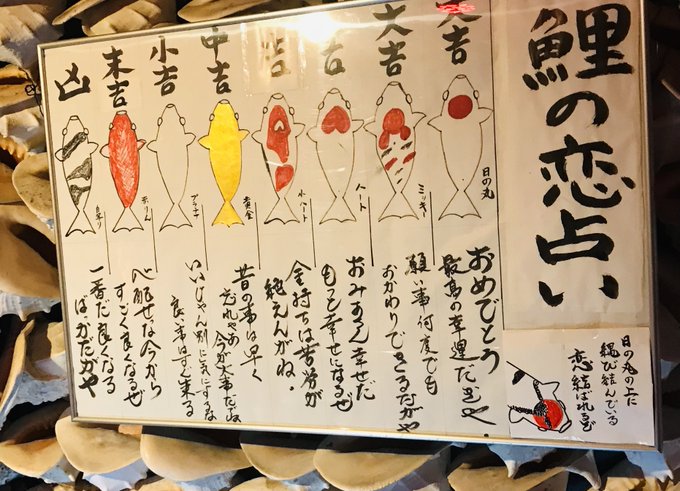 鯉の恋占い
日の丸の上に
結んでいる
恋結ばれるぜ
吉
日の丸
おめでとう
最高の幸運だがや
大吉
ミッキー
願い事何度でも
おかわりできるだがや
吉
ハート
幸せだ
もっと幸せになるぜ
小ハート
金持ちは苦労が
絶えんがね。
中吉
黄金
昔の事は早く
忘れやあ 今が大事だ
小吉
プラチナ
いいじゃん別に気にするな
良い事はすぐ来る
末吉
心配せな今から
すごく良くなるぜ
凶
一番だ良くなる
ば・かだがや